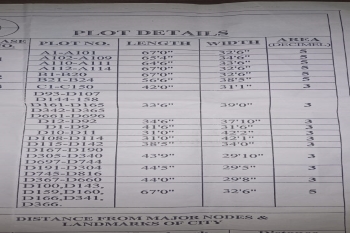 PLOT DETAILS
PLOT NO. LENGTH WIDTH AREA (DECIMEL)
A1-A101 67'0" 32'6" 5
A102-A109 65'4" 34'6" 5
A110-A111 64'6" 33'6" 5
A112-A114 66'0" 33'0" 5
B1-B20 67'0" 32'6" 5
B21-B24 56'6" 38'5" 5
C1-C150 42'0" 31'1" 3
D93-D107
D144-158
D161-D165 32'6" 39'0" 3
D342-D365
D661-D696
D12-D92 34'6" 37'10" 3
D1-D9 41'6" 31'6" 3
D10-D11 31'0" 3
D108-D114 31'0" 42'1" 3
D115-D142 38'5" 34'0" 3
D167-D190
D305-D340 43'9" 29'10" 3
D697-D744
D191-D304 44'5" 29'5" 3
D745-D816
D367-D660 44'0" 29'8" 3
D100,D143,
D159,D160, 67'0" 32'6" 5
D166,D341,
D366.
DISTANCE FROM MAJOR NODES &
LANDMARKS OF CITY